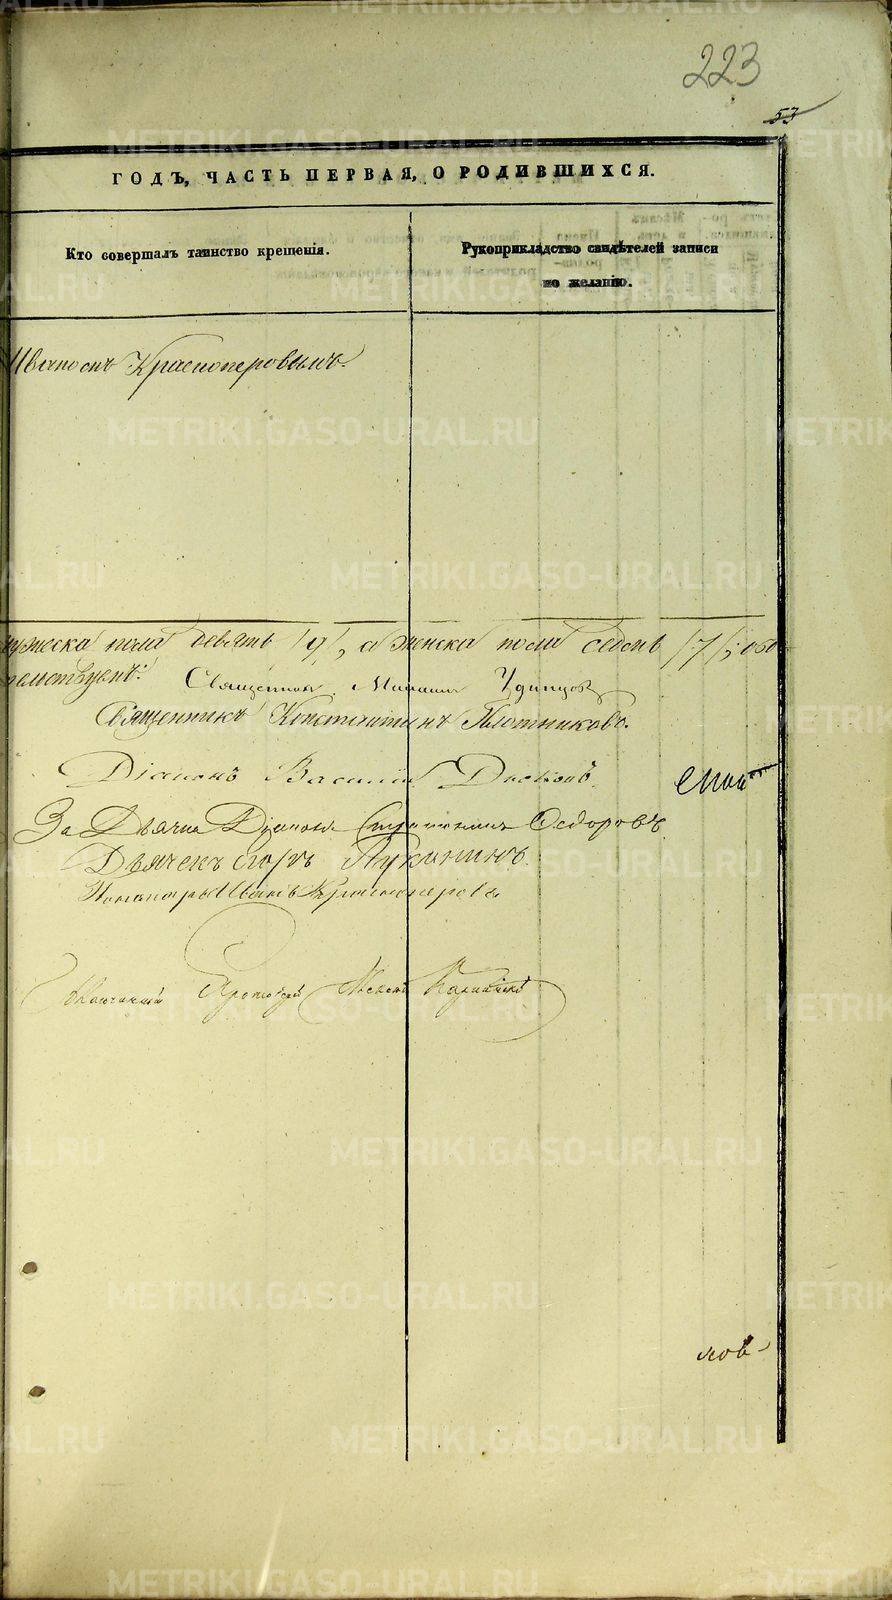 223
53
ГОДЪ, ЧАСТЬ ПЕРВАЯ, О РОДИВШИХСЯ.
Кто совершалъ таинство крещенія.
Рукоприкладство свидѣтелей записи
по желанію.
Иваномъ Красноперовымъ.
мужеска пола девять /9/, а женска пола седмь /7/; обо-
Священник Михаилъ Удинцовъ
Священникъ Константинъ Плотниковъ.
Діаконъ Василій
За Дьячка Діаконъ Ѳедоровъ
Дьячекъ Егоръ Пукининъ.
Пономарь Иванъ Красноперовъ
Протоіерей
ков-
METRIKI.GASO-URAL.RU